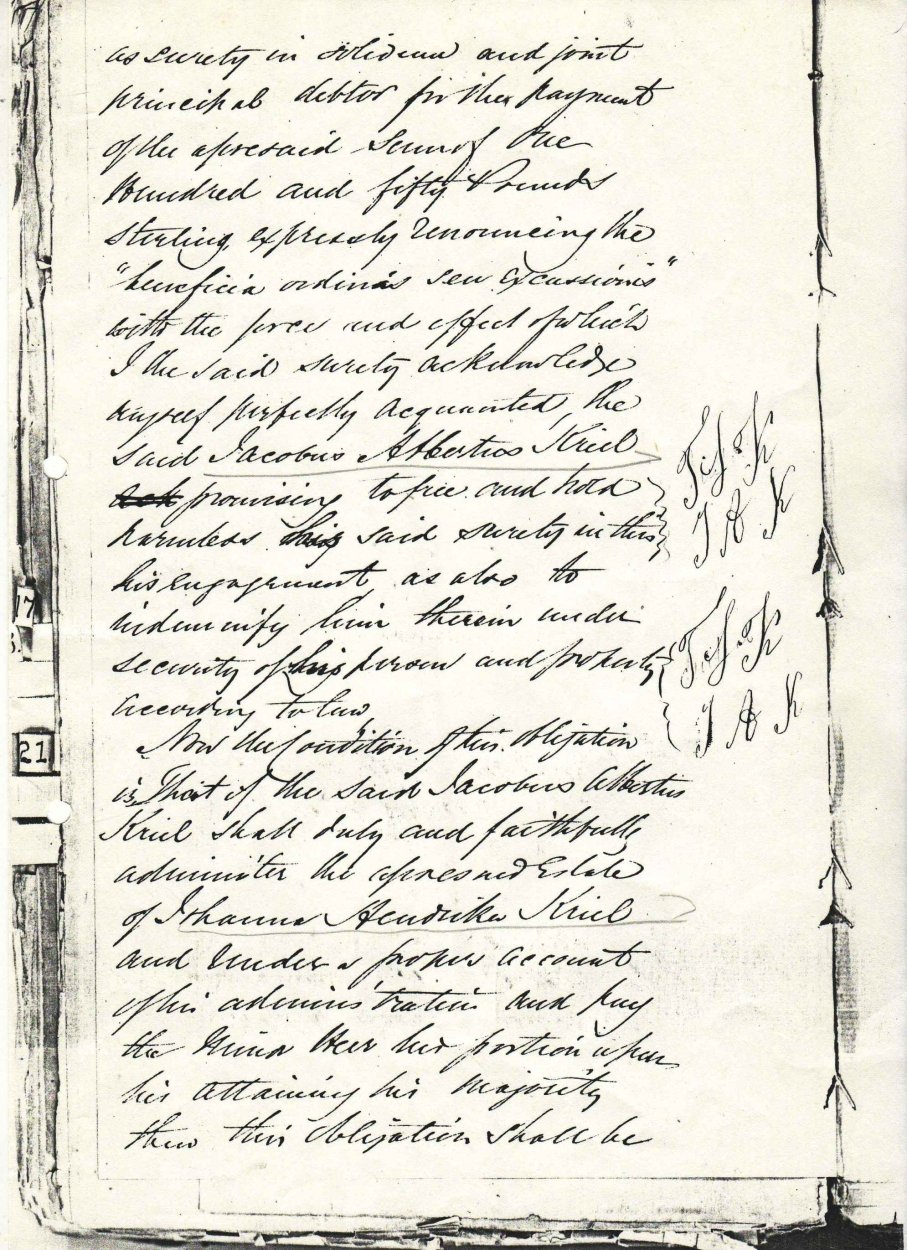 as surety in solidum and joint
principal debtor for the payment
of the aforesaid sum of One
Hundred and fifty Pounds
sterling, expressly renouncing the
"beneficia ordinis seu excussionis"
with the force and effect of which
I the said surety acknowledge
myself perfectly acquainted, the
said Jacobus Albertus Kriel
promising to free and hold
harmless his said surety in this
his engagement, as also to
indemnify him therein under
security of his person and property
according to law
Now the Condition of this obligation
is, That if the said Jacobus Albertus
Kriel shall duly and faithfully
administer the aforesaid Estate
of Johanna Hendrika Kriel
and render a proper account
of his administration and pay
the Minor Heir his portion upon
his attaining his majority
then this Obligation shall be
J A K
J A K
17
21